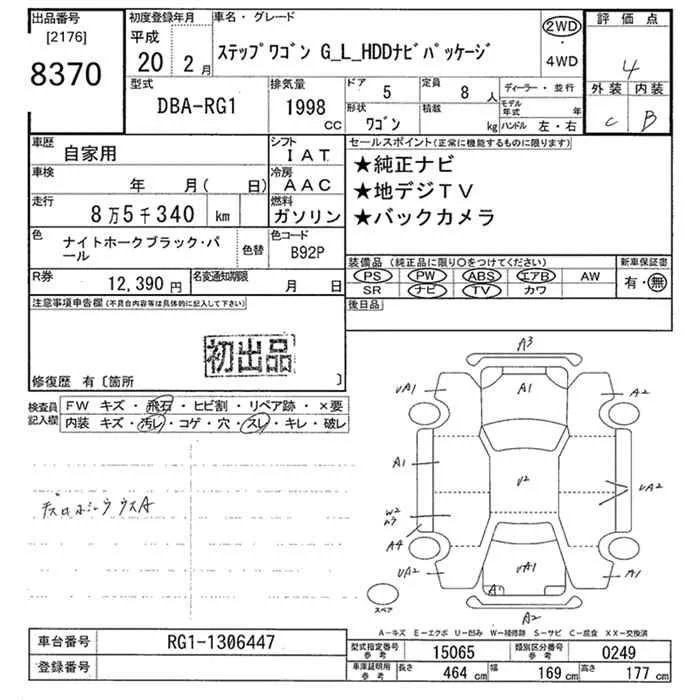 出品番号
[2176]
8370
初度登録年月
平成
20 2月
車名・グレード
ステップワゴン G_L_HDDナビパッケージ
2WD
・
4WD
評価点
4
外装 内装
C B
型式
DBA-RG1
排気量
1998
CC
ドア
5
定員
8人
ディーラー・並行
形状
ワゴン
積載
kg
モデル年式 年
ハンドル 左・右
車歴
自家用
シフト
IAT
車検
年 月( 日)
冷房
AAC
走行
8万5千340 km
燃料
ガソリン
色
ナイトホークブラック・パール
色替
色コード
B92P
R券
12,390円
名変通知期限
月 日
セールスポイント(正常に機能するものに限ります)
★純正ナビ
★地デジTV
★バックカメラ
装備品 (純正品に限り○をつけてください)
PS PW ABS エアB AW
SR ナビ TV カワ
新車保証書
有・無
後日品
注意事項申告欄(不具合内容等は具体的に記入して下さい)
初出品
修復歴 有〔箇所 〕
検査員記入欄
FW キズ・飛石・ヒビ割・リペア跡・×要
内装 キズ・汚レ・コゲ・穴・スレ・キレ・破レ
A3
UA1
A1
A2
A1
U2
UA2
W2
A4
UA2
UA1
A1
A2
スペア
A-キズ E-エクボ U-凹み W-補修跡 S-サビ C-腐食 XX-交換済
車台番号
RG1-1306447
登録番号
型式指定番号
参考
15065
類別区分番号
参考
0249
車庫証明用
参考
長さ
464 cm
幅
169 cm
高さ
177 cm